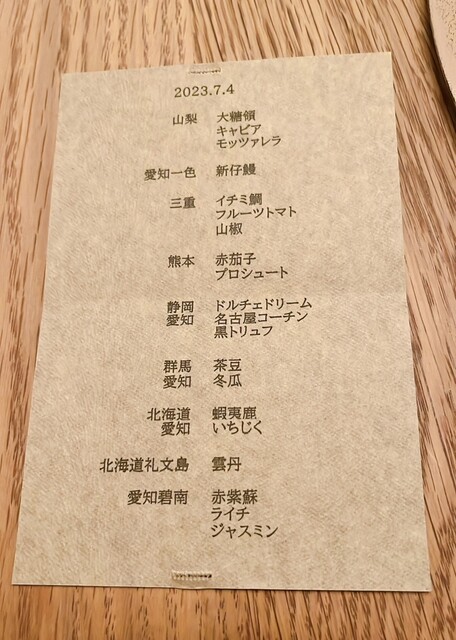 2023.7.4
山梨 大糖領
キャビア
モッツァレラ
愛知一色 新仔鰻
三重 イチミ鯛
フルーツトマト
山椒
熊本 赤茄子
プロシュート
静岡 ドルチェドリーム
愛知 名古屋コーチン
黒トリュフ
群馬 茶豆
愛知 冬瓜
北海道 蝦夷鹿
愛知 いちじく
北海道礼文島 雲丹
愛知碧南 赤紫蘇
ライチ
ジャスミン